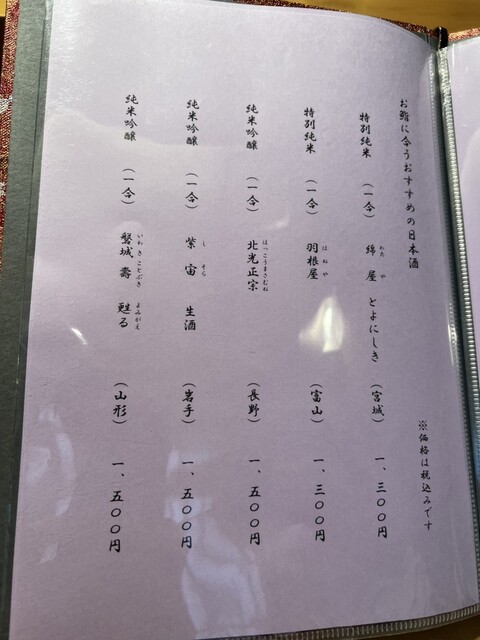 お鮨に合うおすすめの日本酒
※価格は税込みです
特別純米 (一合) 綿屋 とよにしき (宮城) 一、三〇〇円
わた や
特別純米 (一合) 羽根屋 (富山) 一、三〇〇円
はねや
純米吟醸 (一合) 北光正宗 (長野) 一、五〇〇円
ほっこうまさむね
純米吟醸 (一合) 紫宙 生酒 (岩手) 一、五〇〇円
し そら
純米吟醸 (一合) 磐城 壽 甦る (山形) 一、五〇〇円
いわき ことぶき よみがえ